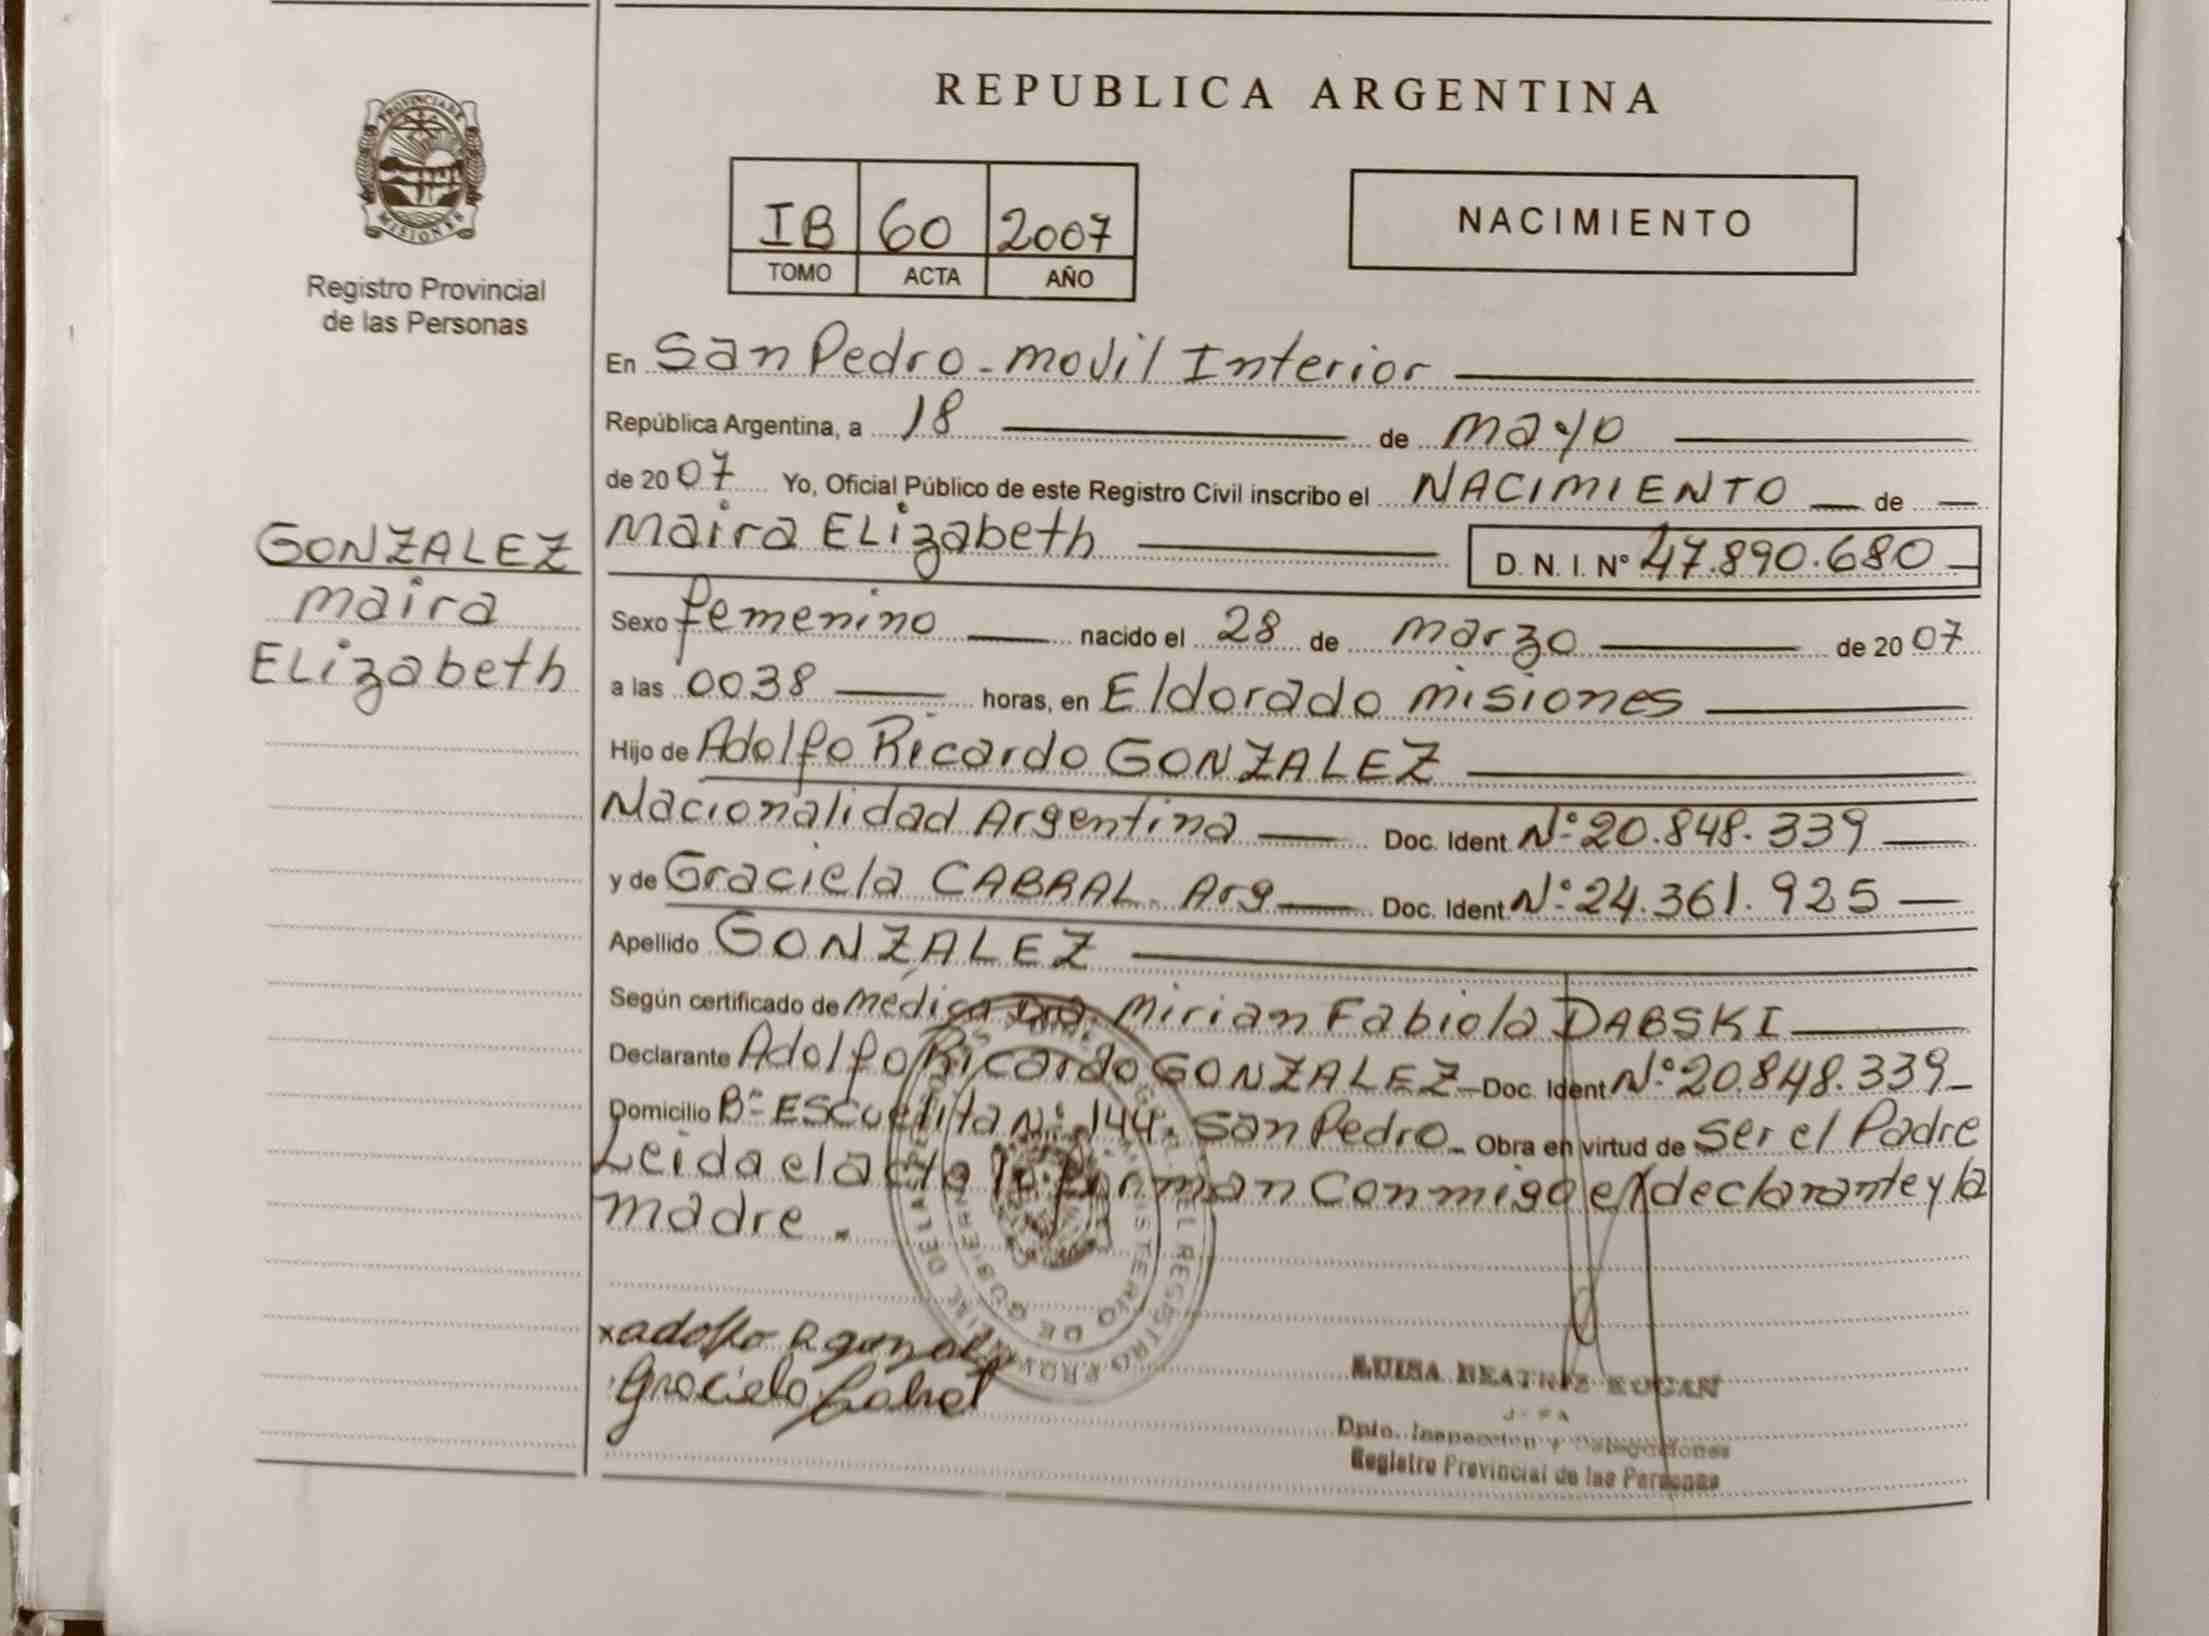 REPUBLICA ARGENTINA
PROVINCIA DE
MISIONES
Registro Provincial
de las Personas
IB 60 2007
TOMO ACTA AÑO
NACIMIENTO
En San Pedro - movil Interior
República Argentina, a 18 de mayo
de 2007 Yo, Oficial Público de este Registro Civil inscribo el NACIMIENTO de
GONZALEZ
maira
ELizabeth
Maira ELizabeth D. N. I. Nº 47.890.680
Sexo femenino nacido el 28 de marzo de 2007
a las 0038 horas, en Eldorado misiones
Hijo de Adolfo Ricardo GONZALEZ
Nacionalidad Argentina Doc. Ident Nº 20.848.339
y de Graciela CABRAL. Arg Doc. Ident. Nº 24.361.925
Apellido GONZALEZ
Según certificado de Medica Dra. Mirian Fabiola DABSKI
Declarante Adolfo Ricardo GONZALEZ Doc. Ident Nº 20.848.339
Domicilio Bº Escuelita Nº 144. San Pedro. Obra en virtud de Ser el Padre
Leida el acta la firman Conmigo el declarante y la
madre.
x adolfo R gonzalez
Graciela Cabral
MINISTERIO DE GOBIERNO
LUISA BEATRIZ KOGAN
JEFA
Dpto. Inspección y Delegaciones
Registro Provincial de las Personas